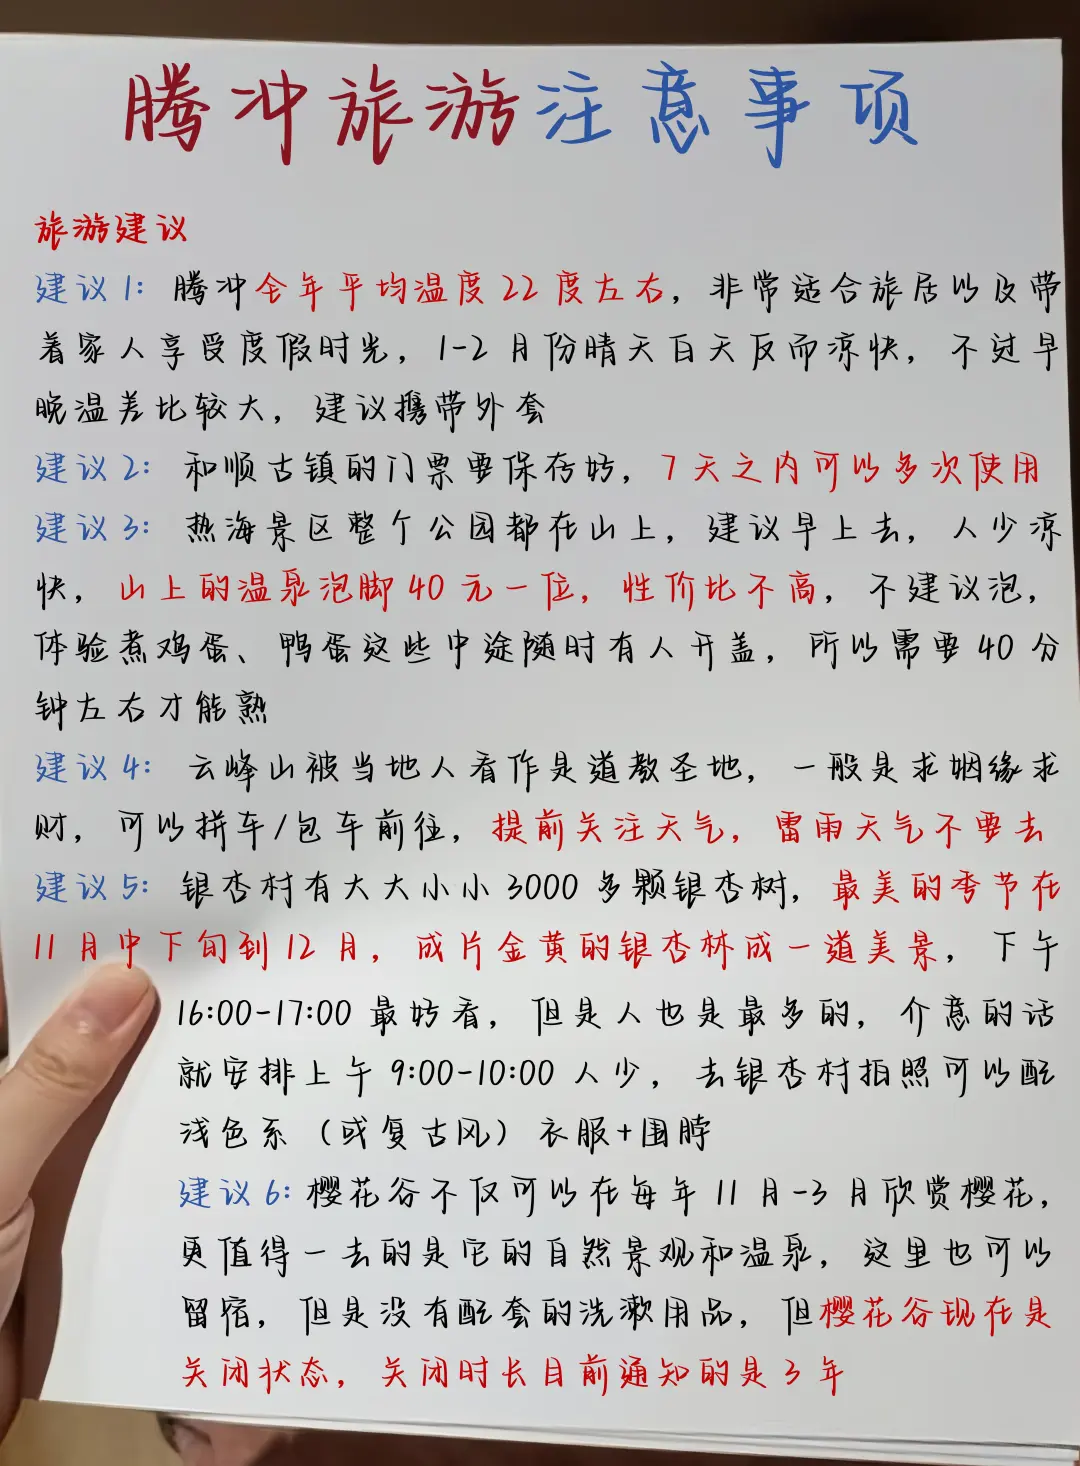 腾冲旅游注意事项
旅游建议
建议1：腾冲全年平均温度22度左右，非常适合旅居以及带
着家人享受度假时光，1-2月份晴天白天反而凉快，不过早
晚温差比较大，建议携带外套
建议2：和顺古镇的门票要保存好，7天之内可以多次使用
建议3：热海景区整个公园都在山上，建议早上去，人少凉
快，山上的温泉泡脚40元一位，性价比不高，不建议泡，
体验煮鸡蛋、鸭蛋这些中途随时有人开盖，所以需要40分
钟左右才能熟
建议4：云峰山被当地人看作是道教圣地，一般是求姻缘求
财，可以拼车/包车前往，提前关注天气，雷雨天气不要去
建议5：银杏村有大大小小3000多颗银杏树，最美的季节在
11月中下旬到12月，成片金黄的银杏林成一道美景，下午
16:00-17:00最好看，但是人也是最多的，介意的话
就安排上午9:00-10:00人少，去银杏村拍照可以配
浅色系（或复古风）衣服+围脖
建议6：樱花谷不仅可以在每年11月-3月欣赏樱花，
更值得一去的是它的自然景观和温泉，这里也可以
留宿，但是没有配套的洗漱用品，但樱花谷现在是
关闭状态，关闭时长目前通知的是3年